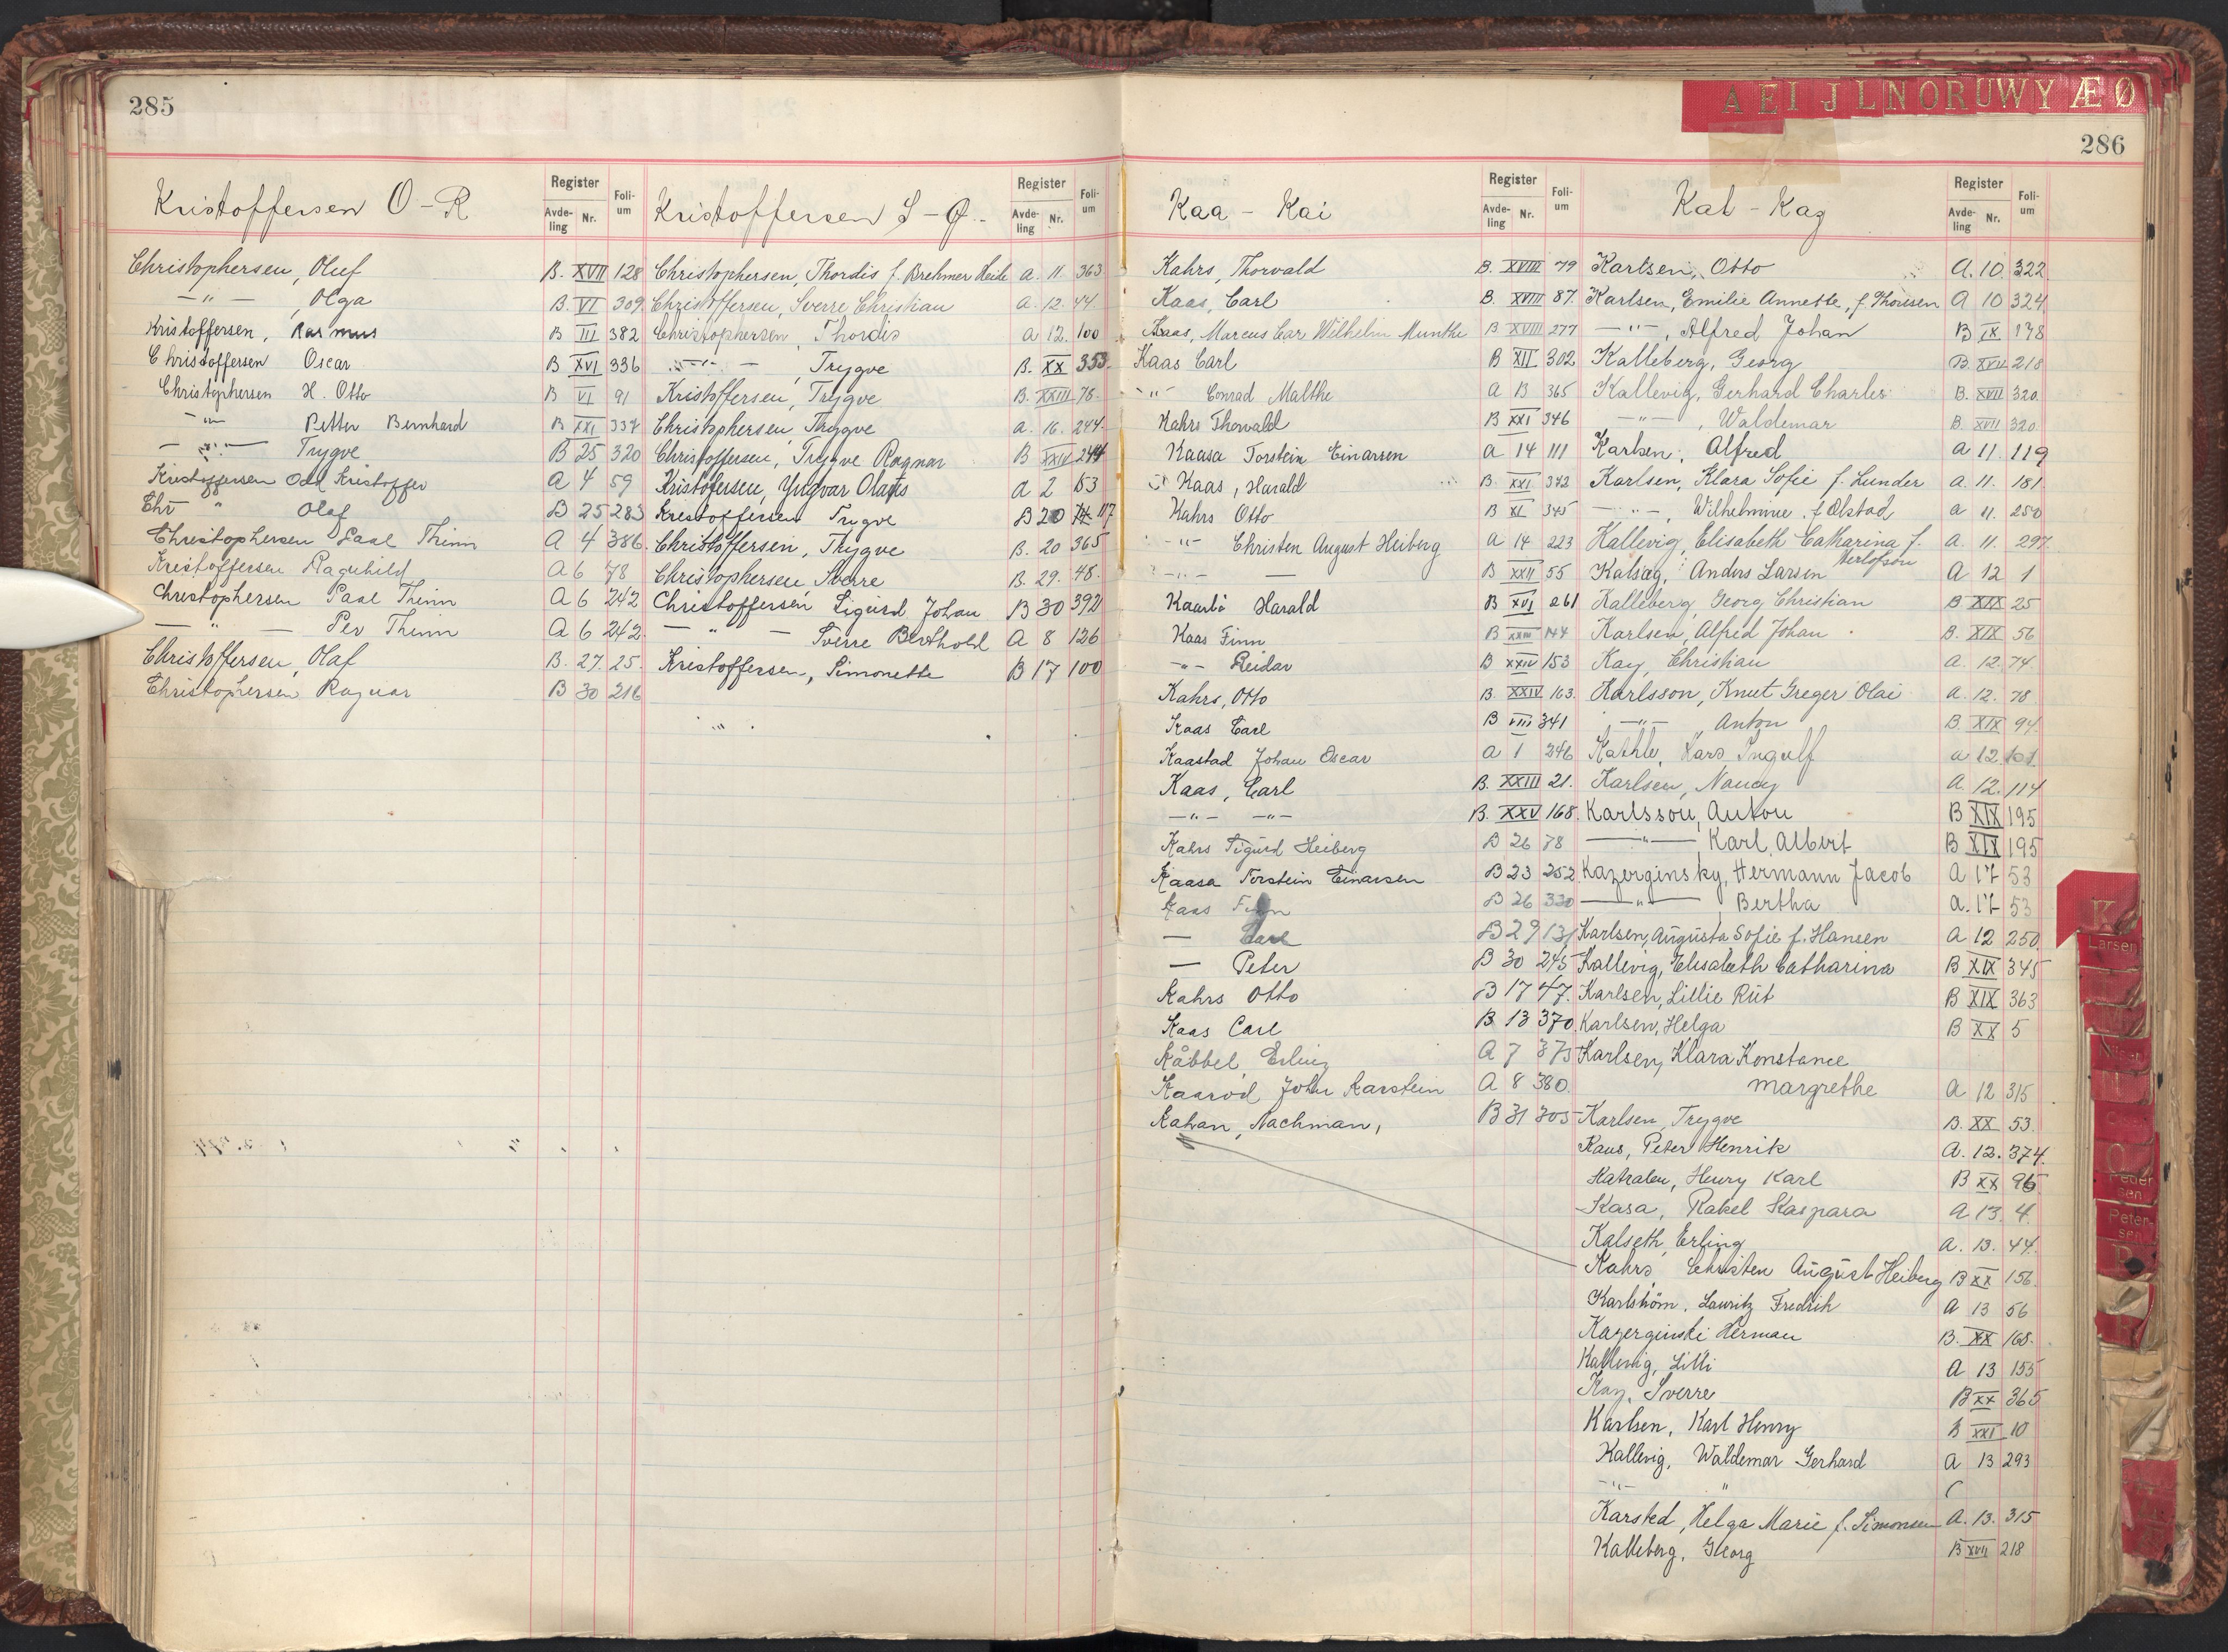 285
Kristoffersen O-R
Register
Avde-
ling
Nr.
Foli-
um
Christophersen, Oluf B. XVII 128
-"- , Olga B. VI 309
Kristoffersen, Rasmus B III 382
Christoffersen Oscar B XVI 336
Christophersen H. Otto B VI 91
-"- Petter Bernhard B XXI 337
-"- Trygve B 25 320
Kristoffersen Odd Kristoffer A 4 59
Chr " Olaf B 25 283
Christophersen Paal Thinn A 4 386
Kristoffersen Ragnhild A 6 78
Christophersen Paal Thinn A 6 242
— " — Per Thinn A 6 242
Christoffersen, Olaf B. 27. 25.
Christophersen Ragnar B 30 216
Kristoffersen S-Ø.-
Register
Avde-
ling
Nr.
Foli-
um
Christophersen, Thordis f. Brehmer Heile A. 11. 363
Christoffersen, Sverre Christian A. 12. 44.
Christophersen, Thordis A 12. 100
-"- , Trygve B. XX 353.
Kristoffersen, Trygve B. XXIII 78.
Christophersen, Thrygve A. 16. 244.
Christoffersen, Trygve Ragnar B XXIV 244
Kristofersen, Yngvar Olaves A 2 153
Kristoffersen Trygve B 20 117
Christoffersen, Thrygve B. 20 365
Christophersen Sverre B. 29. 48.
Christoffersen Sigurd Johan B 30 392
— " — Sverre Berthold A 8 126
Kristoffersen, Simonette B 17 100
286
A E I J L N O R U W Y Æ Ø
Kaa - Kai
Register
Avde-
ling
Nr.
Foli-
um
Kahrs, Thorvald B. XVIII 79
Kaas, Carl B. XVIII 87.
Kaas, Marcus Car Wilhelm Munthe B XVIII 277
Kaas Carl B XII 302
-"- Conrad Malthe A 13 365
Kahrs Thorvald B XXI 346
Kaasa Torstein Einarsen A 14 111
Kaas, Harald B. XXI 372
Kahrs Otto B XI 345
-"- Christen August Heiberg A 14 223
-"- — B XXII 55
Kaarbø Harald B XVI 261
Kaas Finn B XXIII 144
-"- Reidar B XXIV 153
Kahrs, Otto B. XXIV 163.
Kaas Carl B VIII 341
Kaastad Johan Oscar A 1 246
Kaas, Carl B. XXIII 21.
-"- -"- B. XXV 168.
Kahrs Sigurd Heiberg B 26 78
Kaasa Torstein Einarsen B 23 252
Kaas Finn B 26 330
— Carl B 29 131
— Peter B 30 245
Kahrs Otto B 17 47.
Kaas Carl B 13 370
Kåbbel, Erling A 7 375
Kaarød John Karstein A 8 380.
Kahan, Nachman, B 31 305
Kal - Kaz
Register
Avde-
ling
Nr.
Foli-
um
Karlsen, Otto A. 10. 322
Karlsen, Emilie Annette, f. Thoresen A 10 324.
-"-, Alfred Johan B IX 178
Kalleberg, Georg B. XVII 218
Kallevig, Gerhard Charles B. XVII 320.
-"-, Waldemar B. XVII 320.
Karlsen, Alfred A 11. 119
Karlsen, Klara Sofie f. Lunder A. 11. 181.
-"-, Wilhelmine f. Olstad A 11. 250
Kallevig, Elisabeth Catharina f. Herlofson A. 11. 297.
Kalsæg, Anders Larsen A 12 1
Kalleberg, Georg Christian B XIX 25
Karlsen, Alfred Johan B. XIX 56
Kay, Christian A. 12. 74.
Karlsson, Knut Greger Olai A. 12. 78
-"- Anton B XIX 94.
Lars Ingulf A 12. 101.
Karlsen, Nancy A. 12. 114
Karlsson, Anton B XIX 195
-"- Karl Albert B XIX 195
Kazerginsky, Hermann Jacob A 17 53
-"- Bertha A. 17 53
Karlsen, Augusta Sofie f. Hansen A 12 250
Kallevig, Elisabeth Catharina B XIX 345
Karlsen, Lillie Rut B XIX 363
Karlsen, Helga B XX 5
Karlsen, Klara Konstance
margrethe A 12 315
Karlsen, Trygve B. XX 53.
Kaus, Peter Henrik A. 12. 374.
Henry Karl B XX 96
Kasa, Rakel Kaspara A 13. 4.
Kalseth, Erling A. 13. 44.
Kahrs, Christen August Heiberg B XX 156.
Karlstrøm, Lauritz Fredrik A 13 56
Kazerginski Herman B. XX 168.
Kallevig, Lilli A 13 155
Kay, Sverre B XX 365
Karlsen, Karl Henry B XXI 10
Kallevig, Waldemar Gerhard A 13 293
-"- "
Karsted, Helga Marie f. Simonsen A. 13. 315
Kalleberg, Georg B XVII 218
K
Larsen
O
Peder
sen
Peter-
sen
P